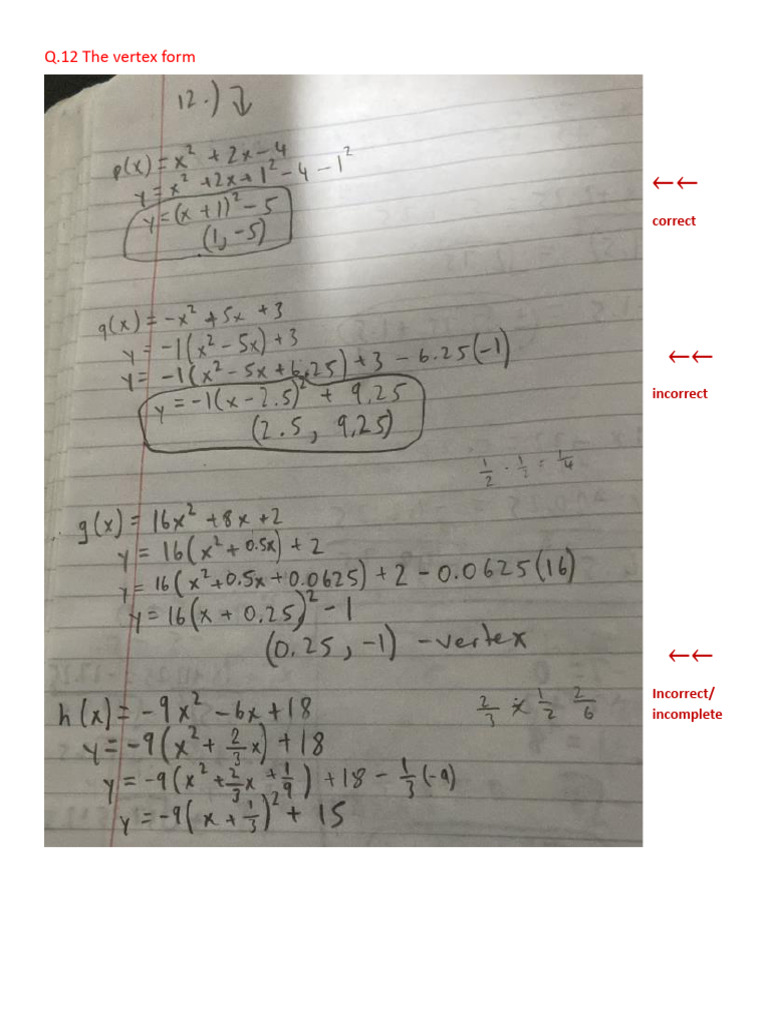 Q.12 The vertex form
12.) ↓
p(x) = x² + 2x - 4
y = x² + 2x + 1² - 4 - 1²
y = (x + 1)² - 5
(1, -5)
←←
correct
q(x) = -x² + 5x + 3
y = -1(x² - 5x) + 3
y = -1(x² - 5x + 6.25) + 3 - 6.25(-1)
y = -1(x - 2.5)² + 9.25
(2.5, 9.25)
←←
incorrect
1/2 · 1/2 = 1/4
g(x) = 16x² + 8x + 2
y = 16(x² + 0.5x) + 2
y = 16(x² + 0.5x + 0.0625) + 2 - 0.0625(16)
y = 16(x + 0.25)² - 1
(0.25, -1) - vertex
←←
Incorrect/
incomplete
h(x) = -9x² - 6x + 18
2/3 × 1/2 2/6
y = -9(x² + 2/3x) + 18
y = -9(x² + 2/3x + 1/9) + 18 - 1/3(-9)
y = -9(x + 1/3)² + 15